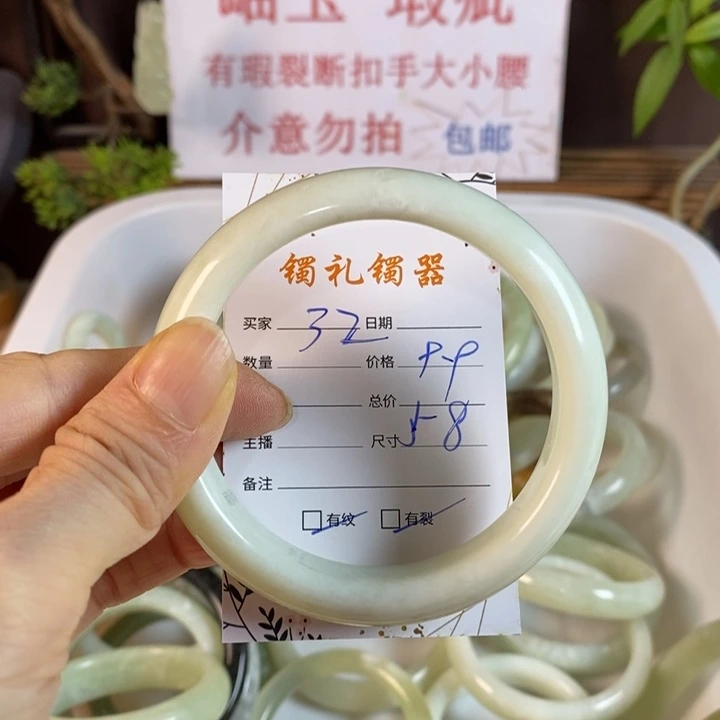 岫玉 瑕疵
有瑕裂断扣手大小腰
介意勿拍 包邮
镯礼镯器
买家 32 日期
数量 价格 9.9
总价
主播 尺寸 58
备注
☐有纹 ☐有裂